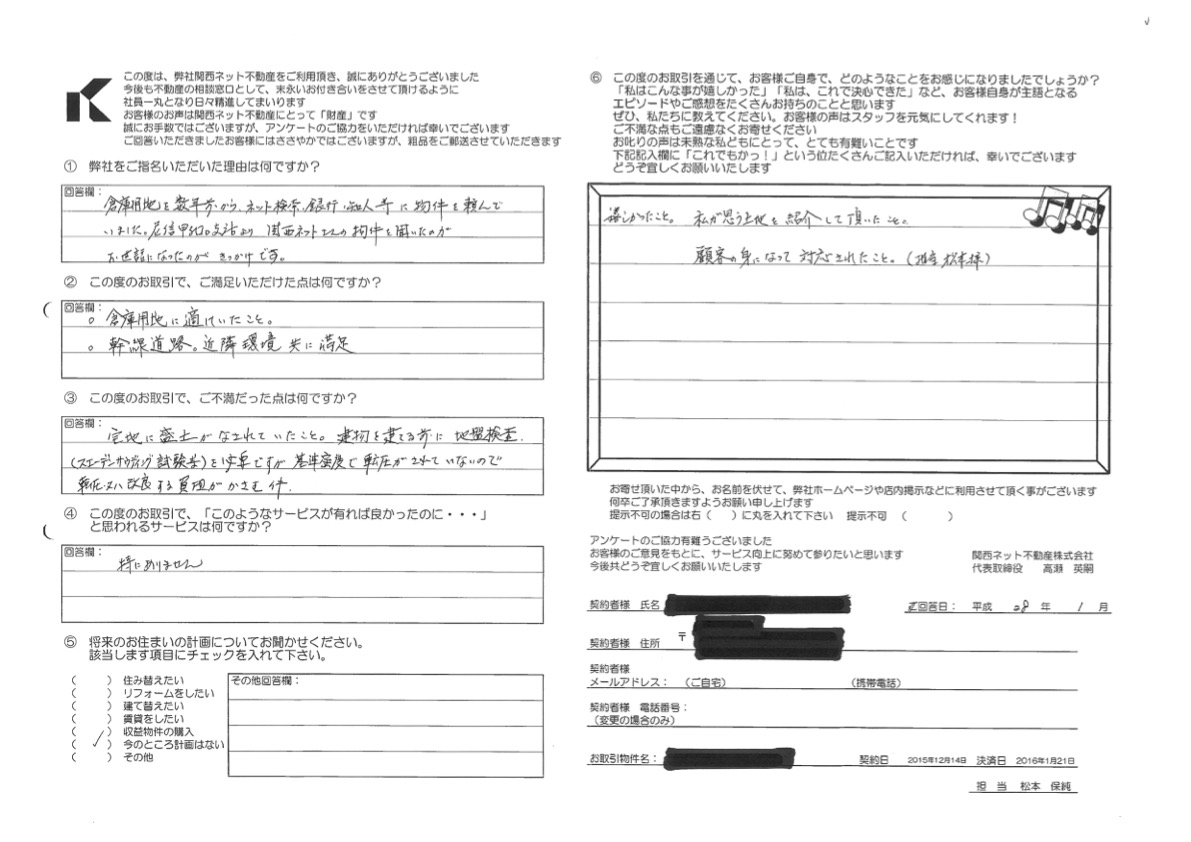 この度は、弊社関西ネット不動産をご利用頂き、誠にありがとうございました
今後も不動産の相談窓口として、末永いお付き合いをさせて頂けるように
社員一丸となり日々精進してまいります
お客様のお声は関西ネット不動産にとって「財産」です
誠にお手数ではございますが、アンケートのご協力をいただければ幸いでございます
ご回答いただきましたお客様にはささやかではございますが、粗品をご郵送させていただきます
① 弊社をご指名いただいた理由は何ですか？
回答欄：
倉庫用地を数年前から、ネット検索、銀行、知人等に物件を頼んで
いました。尼信甲和口支店より 関西ネットさんの物件を聞いたのが
お世話になったのが きっかけです。
② この度のお取引で、ご満足いただけた点は何ですか？
回答欄：
。倉庫用地に適していたこと。
。幹線道路。近隣環境 共に満足
③ この度のお取引で、ご不満だった点は何ですか？
回答欄：
宅地に盛土がなされていたこと。建物を建てる前に 地盤検査.
(スエーデンサウディング試験等)を ですが 基準密度で転圧がされていないので
転圧又ハ改良する費用がかさむ件.
④ この度のお取引で、「このようなサービスが有れば良かったのに・・・」
と思われるサービスは何ですか？
回答欄：
特にありません
⑤ 将来のお住まいの計画についてお聞かせください。
該当します項目にチェックを入れて下さい。
（　　）住み替えたい
（　　）リフォームをしたい
（　　）建て替えたい
（　　）賃貸をしたい
（　　）収益物件の購入
（ ✓ ）今のところ計画はない
（　　）その他
その他回答欄：
⑥ この度のお取引を通じて、お客様ご自身で、どのようなことをお感じになりましたでしょうか？
「私はこんな事が嬉しかった」「私は、これで決心できた」など、お客様自身が主語となる
エピソードやご感想をたくさんお持ちのことと思います
ぜひ、私たちに教えてください。お客様の声はスタッフを元気にしてくれます！
ご不満な点もご遠慮なくお寄せください
お叱りの声は未熟な私どもにとって、とても有難いことです
下記記入欄に「これでもかっ！」という位たくさんご記入いただければ、幸いでございます
どうぞ宜しくお願いいたします
嬉しかたこと。 私が思う土地を紹介して頂いたこと。
顧客の身になって 対応されたこと。(担当 松本様)
お寄せ頂いた中から、お名前を伏せて、弊社ホームページや店内掲示などに利用させて頂く事がございます
何卒ご了承頂きますようお願い申し上げます
提示不可の場合は右（　　）に丸を入れて下さい　提示不可　（　　　）
アンケートのご協力有難うございました
お客様のご意見をもとに、サービス向上に努めて参りたいと思います
今後共どうぞ宜しくお願いいたします
関西ネット不動産株式会社
代表取締役　高瀬　英嗣
契約者様 氏名
ご回答日： 平成 28 年 1 月
契約者様 住所 〒
契約者様
メールアドレス： （ご自宅） （携帯電話）
契約者様 電話番号：
（変更の場合のみ）
お取引物件名： 契約日 2015年12月14日 決済日 2016年1月21日
担 当 松本 保純